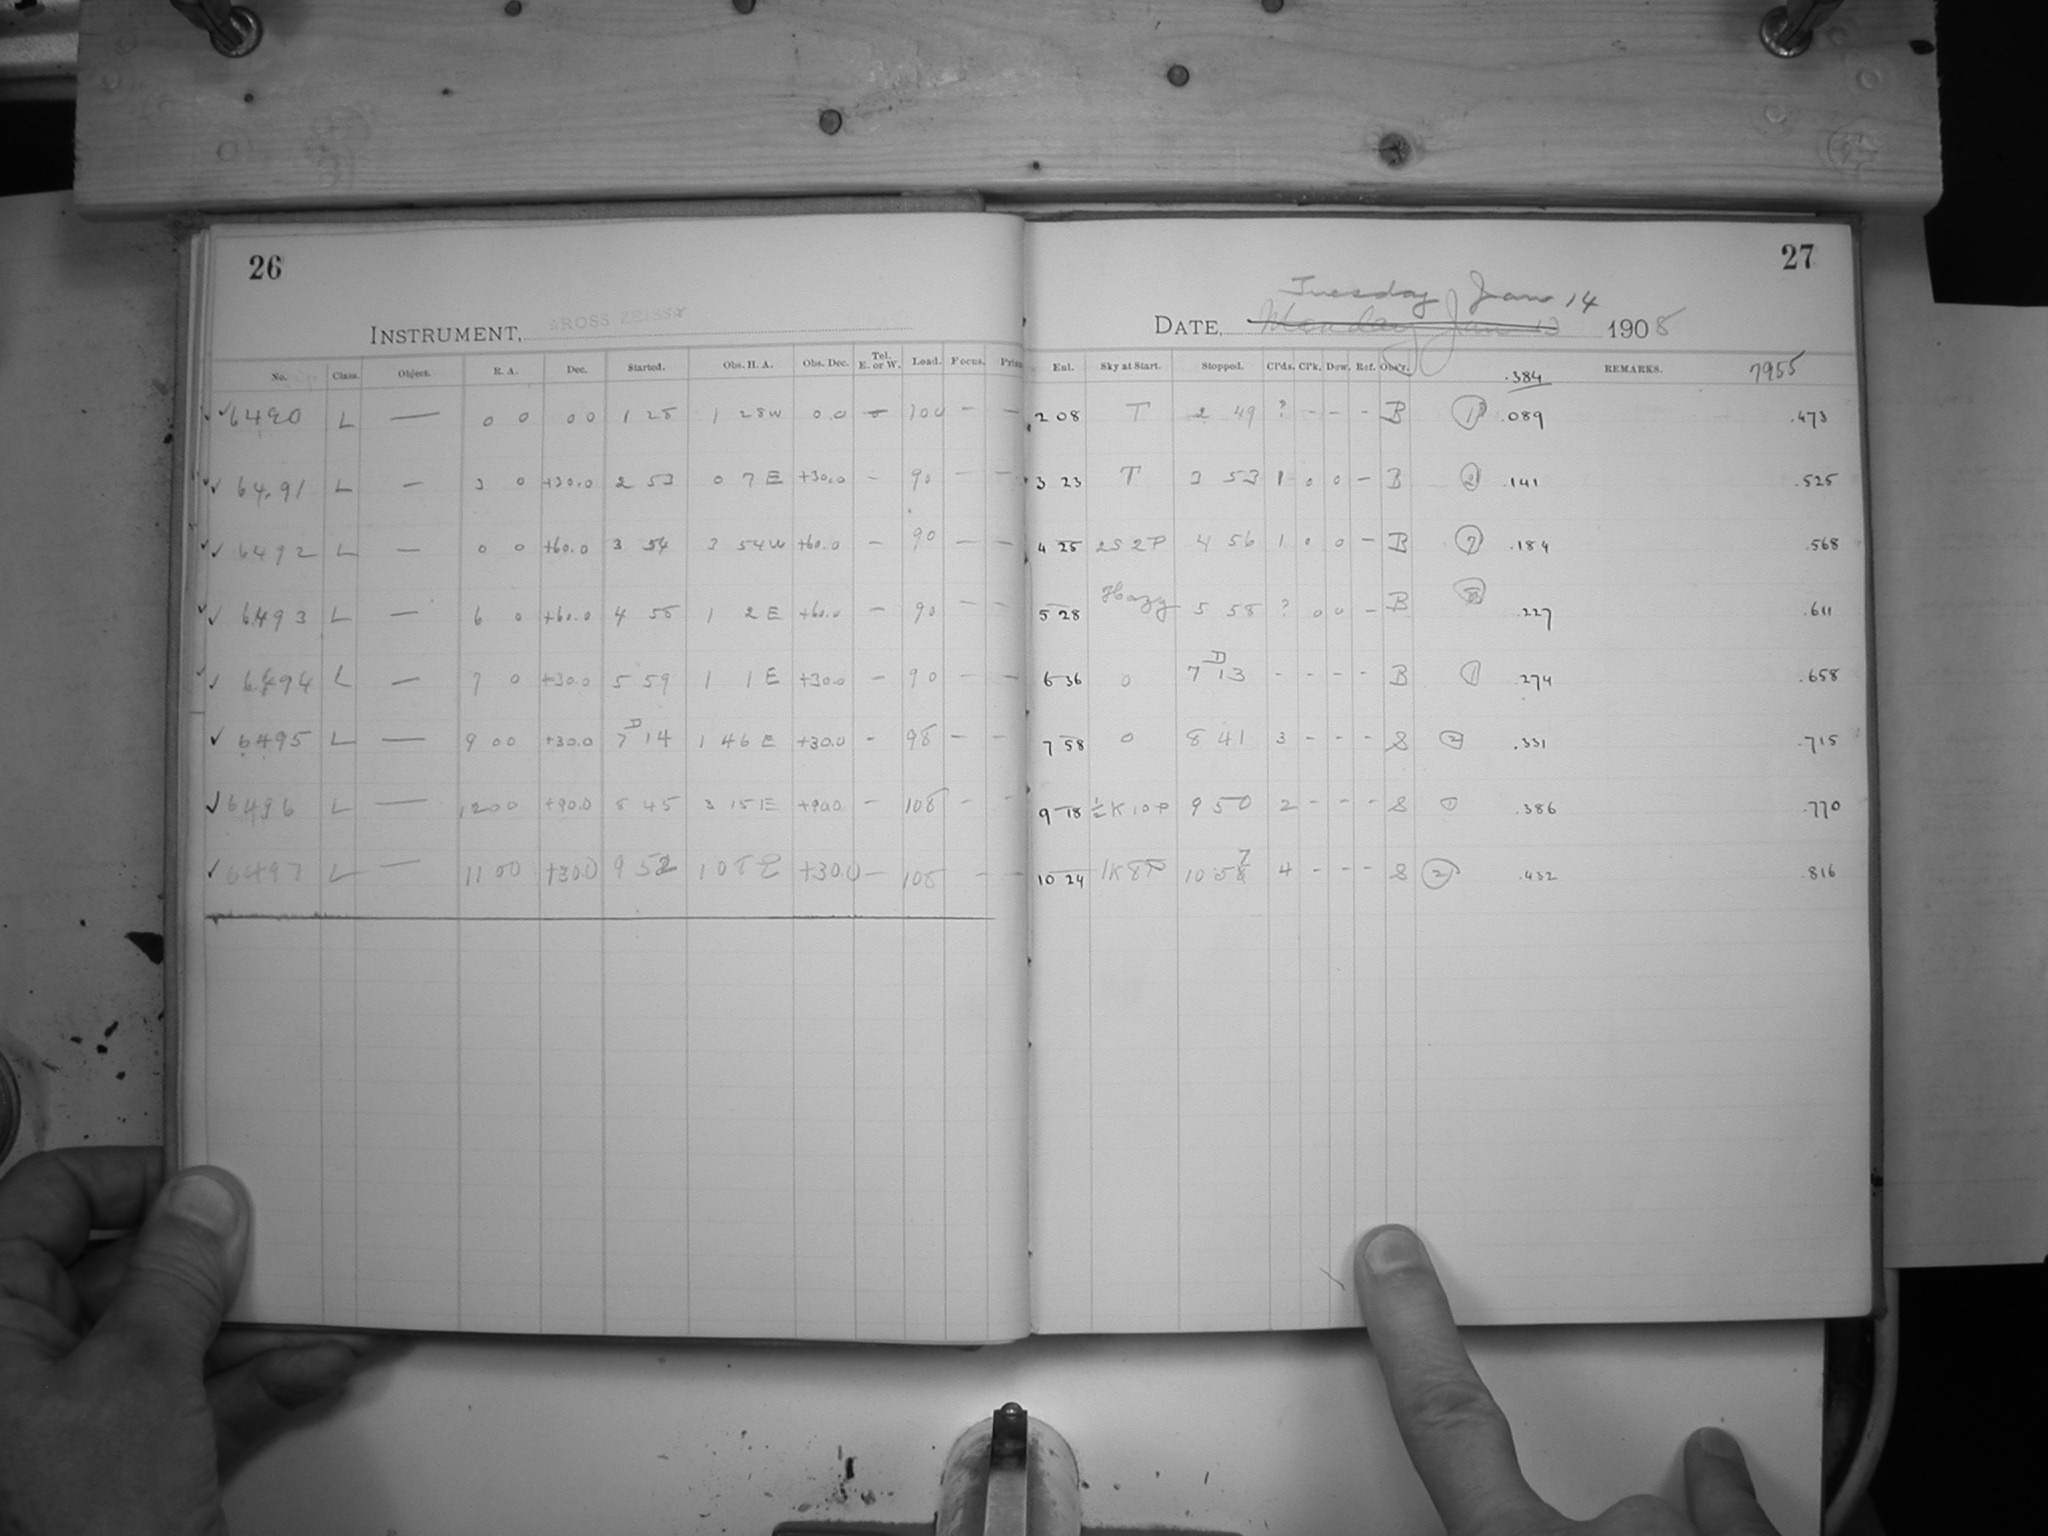 26
INSTRUMENT, AROSS ZEISS
No. Class. Object. R. A. Dec. Started. Obs. H. A. Obs. Dec. Tel. E. or W. Lead. Focus.
✓✓ 6490 L — 0 0 0 0 1 28 1 28W 0.0 — 100 — —
✓✓ 6491 L — 3 0 +30.0 2 53 0 7 E +30.0 — 90 — —
✓✓ 6492 L — 0 0 +60.0 3 54 3 54W +60.0 — 90 — —
✓✓ 6493 L — 6 0 +60.0 4 58 1 2 E +60.0 — 90 — —
✓✓ 6494 L — 7 0 +30.0 5 59 1 1 E +30.0 — 90 — —
✓ 6495 L — 9 00 +30.0 7 14 1 46 E +30.0 - 98 — —
✓ 6496 L — 12 00 +90.0 8 45 3 15 E +90.0 - 108 - -
✓ 6497 L — 11 00 +30.0 9 52 1 08 E +30.0 — 108 - —
27
Tuesday Jan 14
DATE, Monday Jan 13 1908
Eul. Sky at Start. Stopped. CPds. CPk. Dew. Ref. Obs'r. .384 REMARKS. 7955
2 08 T 2 49 ? - - - B 1 .089 .473
3 23 T 3 53 1 0 0 - B 2 .141 .525
4 25 2S 2P 4 56 1 0 0 - B 7 .184 .568
5 28 Hazy 5 58 ? 0 0 - B .227 .611
6 36 0 7 D 13 - - - - B 1 .274 .658
7 58 0 8 41 3 - - - S 2 .331 .715
9 18 ½K 10P 9 50 2 - - - S 1 .386 .770
10 24 1K 8P 10 57 4 - - - S 2 .432 .816